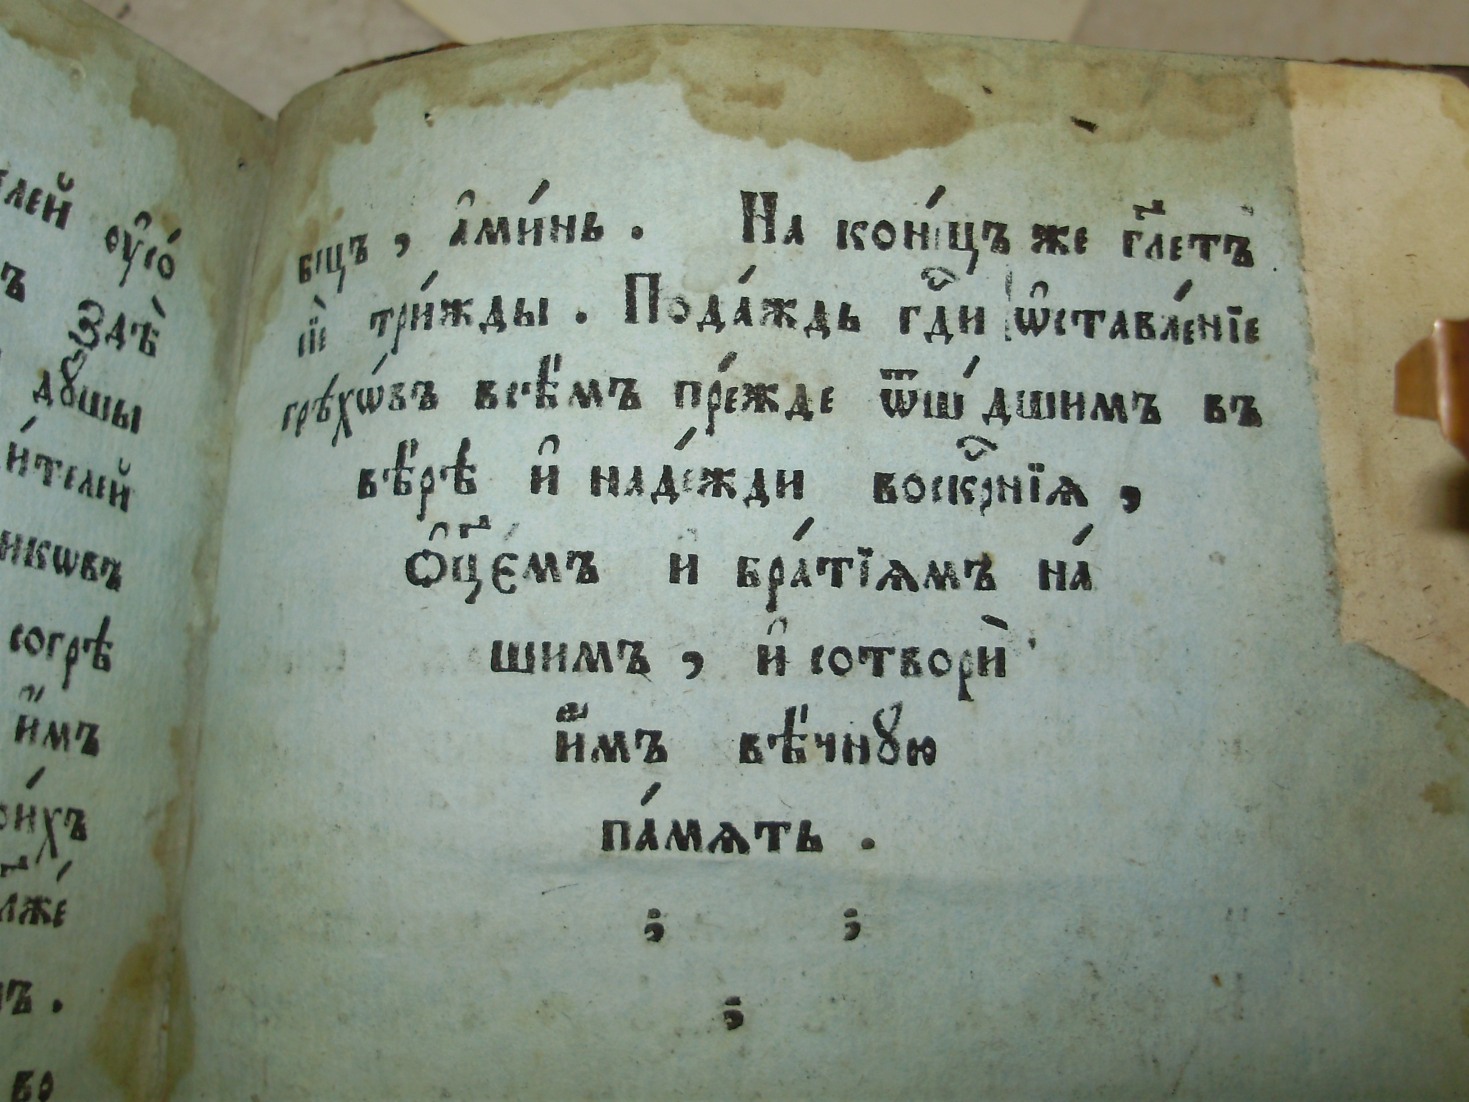 елей ᲂу҆со́
ъ здѣ̀
дꙋшы
и́телей
никѡвъ
согрѣ
и҆̀мъ
ои́хъ
мже́
ъ.
во
вцъ, а҆ми́нь. На кон́цъ же гл҃етъ
сїѐ три́жды. Пода́ждь гд҇и ѡ҆ставле́нїе
грѣхѡ́въ всѣ́мъ пре́жде ѿше́дшимъ въ
вѣ́рѣ и҆ наде́жди воскр҇нїѧ,
Ѻ҆ц҃є́мъ и бра́тїѧмъ на́
шимъ, и҆ сотворѝ
и҆̀мъ вѣ́чнꙋю
па́мѧть.
; ;
;